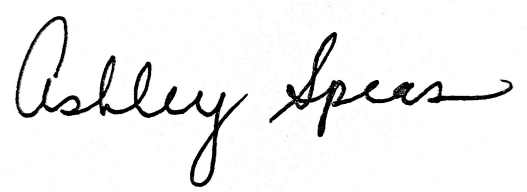 Ashley Spears